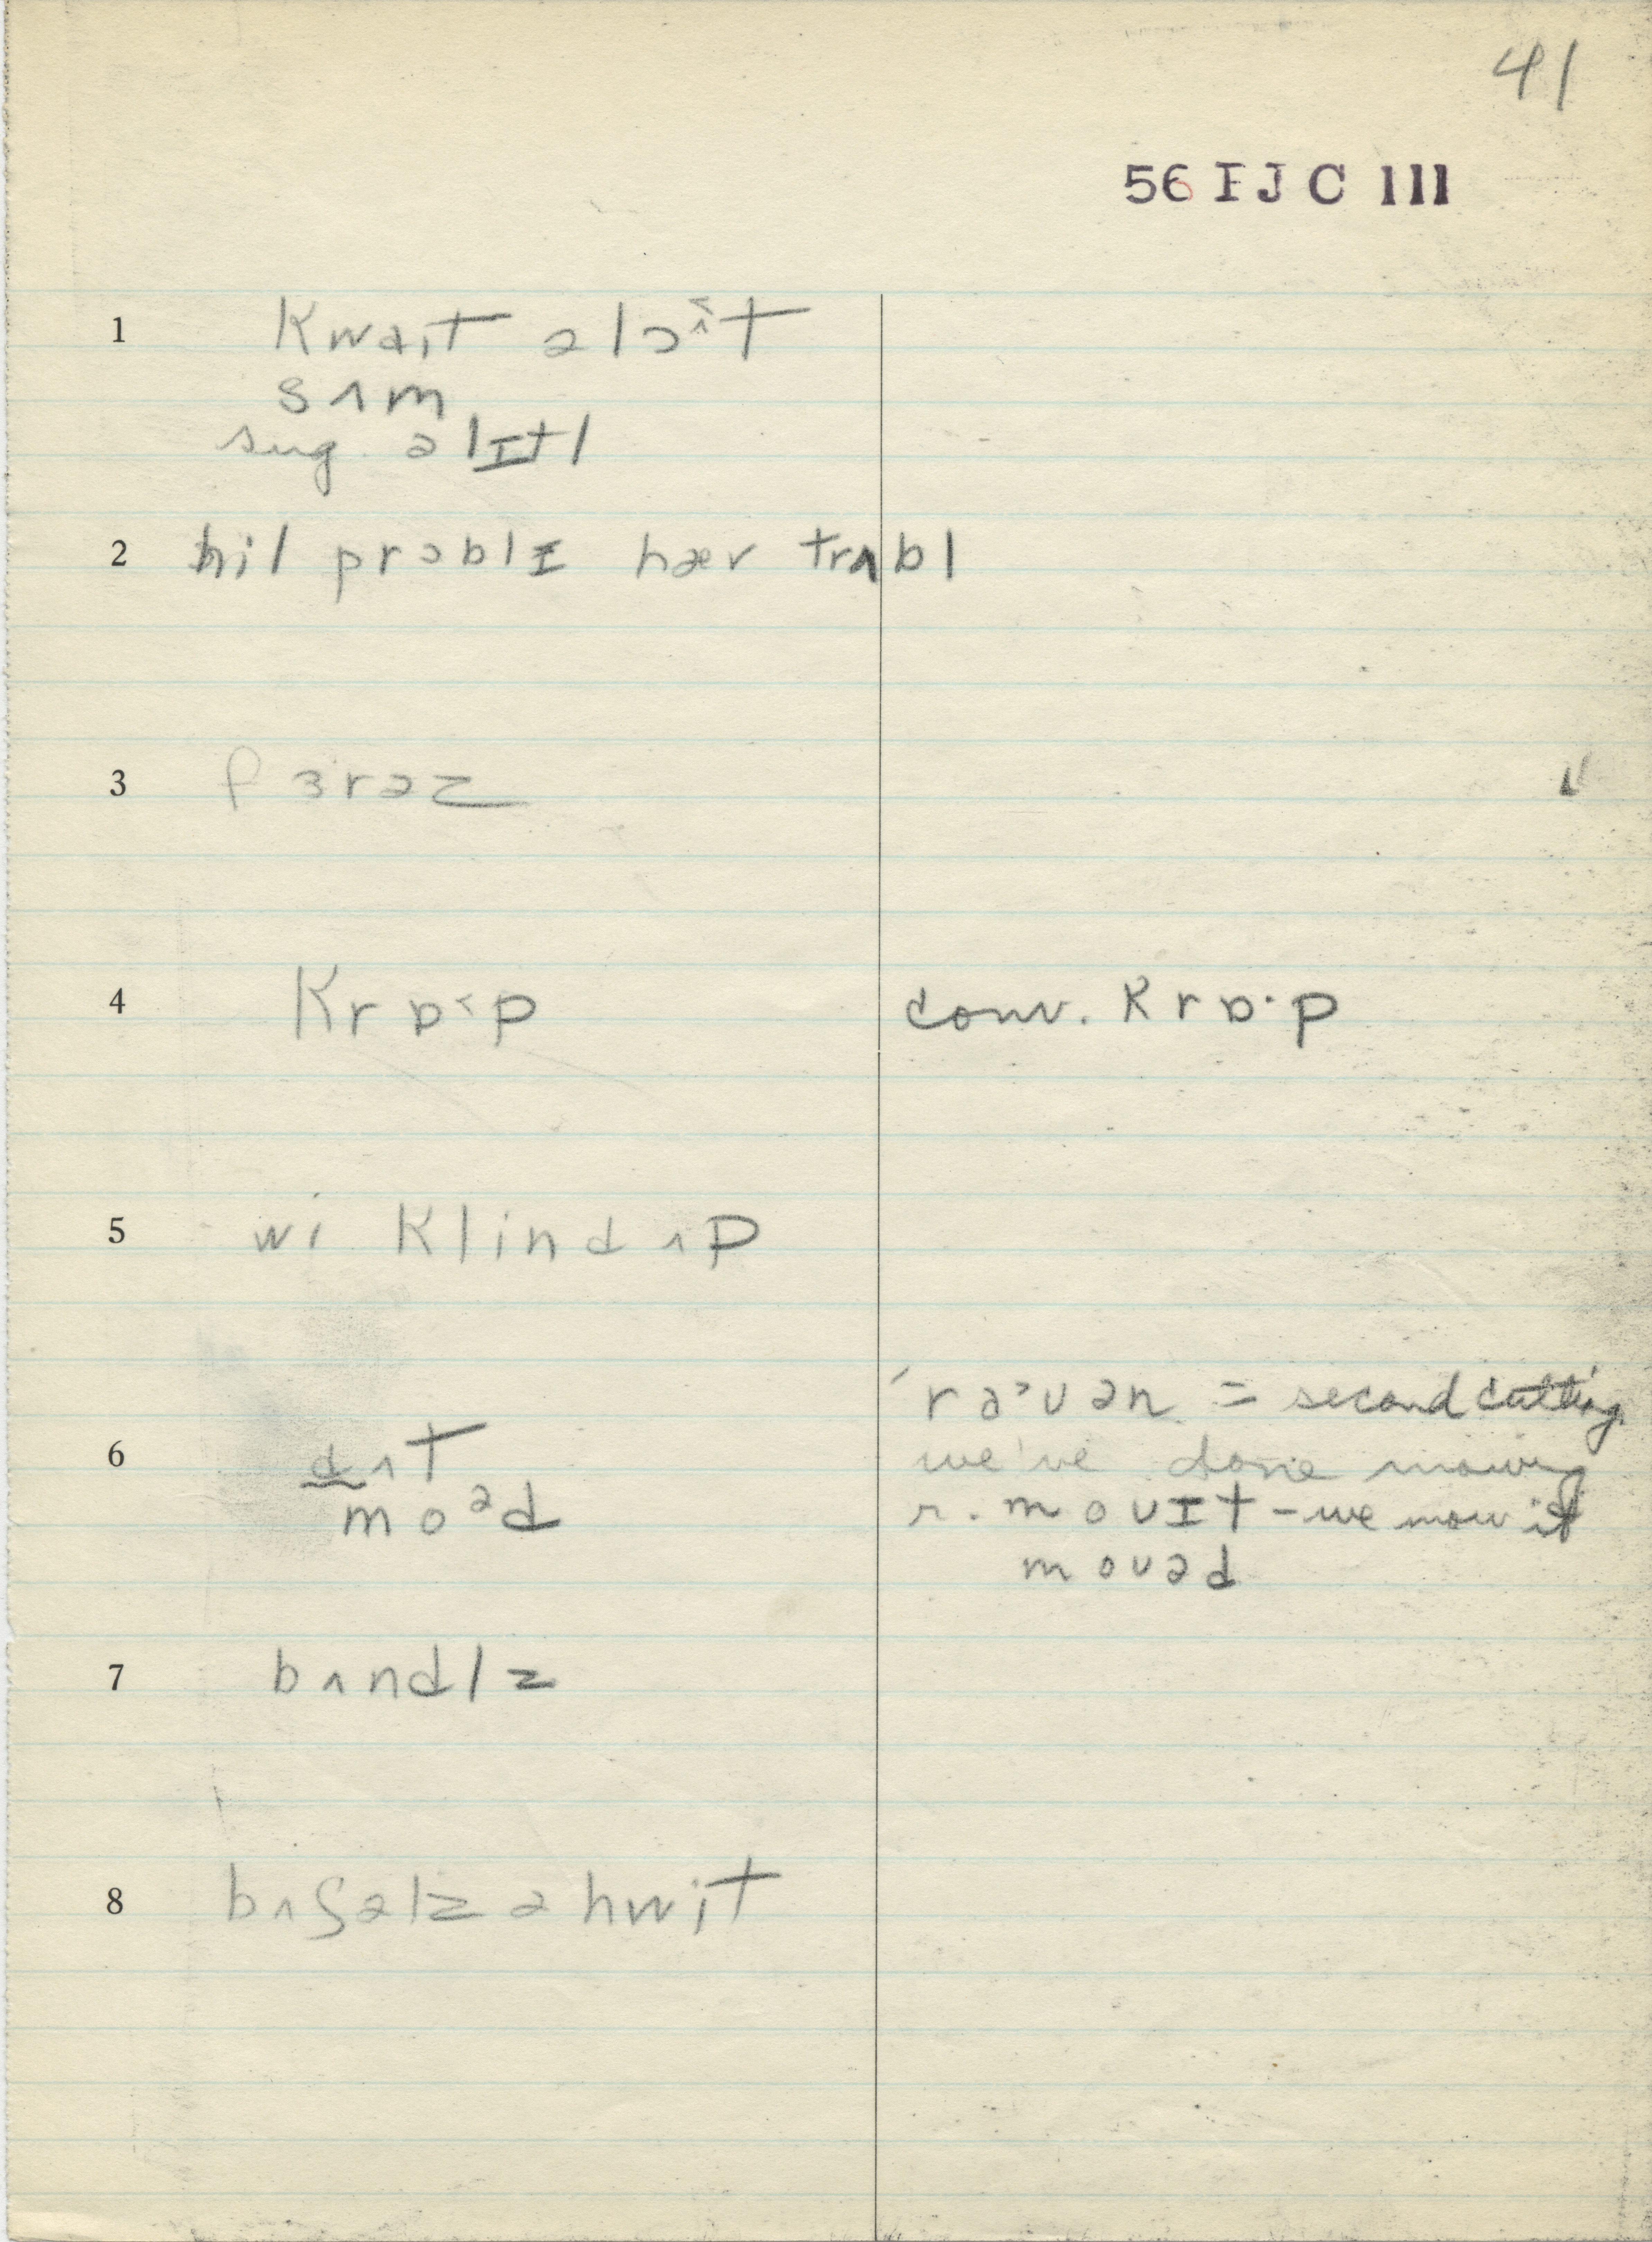 41
56 I J C 111
1 kwaıt ə lɔ˂ʌt
sʌm
sug. ə lɪtl
2 hil prɔblɪ hæv trʌbl
3 fɜrəz
4 krɒ˂p conv. krɒ·p
5 wi klind ʌp
ˈraˑʊən = second cutting
we've done mowing
6 dʌt r. moʊɪt - we mow it
moᵊd moʊəd
7 bʌndlz
8 bʌʃəlz ə hwit